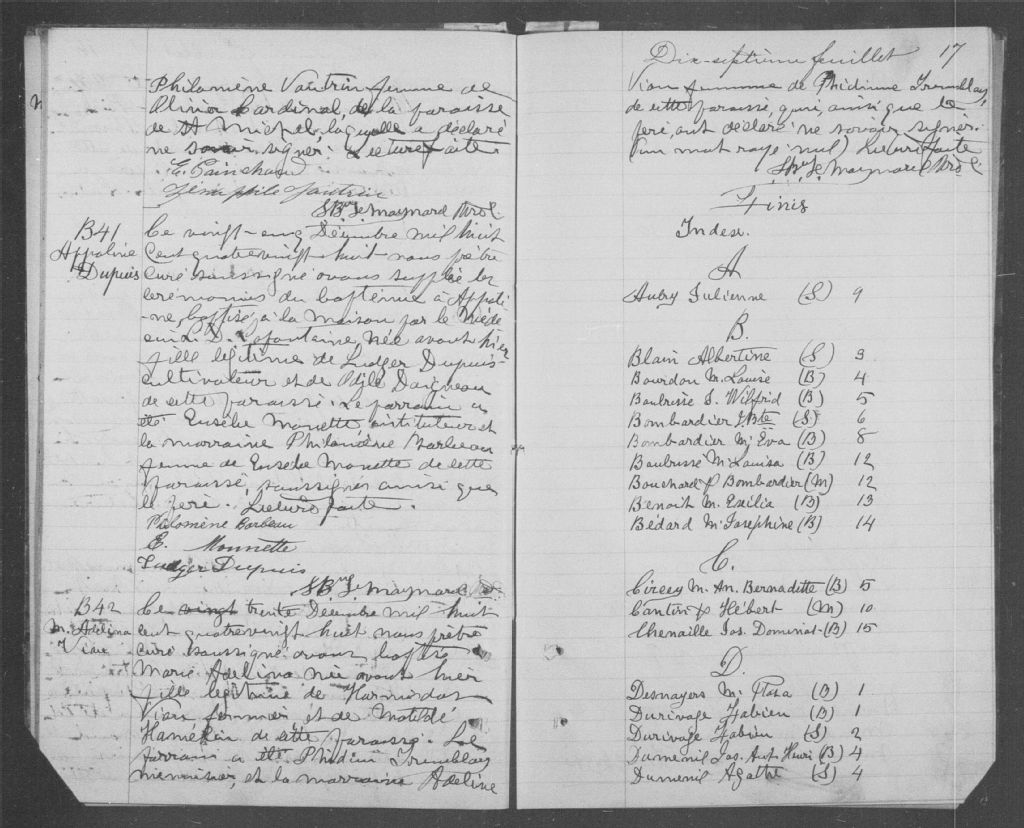 Philomène Vautrin femme de
Olivier Cardinal, de la paroisse
de St Michel, laquelle a déclaré
ne savoir signer. Lecture faite.
E. Painchaud
Vautrin
J. Bte Lse Maynard Ptre
B41
Appoline
Dupuis
Ce vingt-cinq Décembre mil huit
cent quatrevingt-huit nous prêtre
curé soussigné avons supplée les
cérémonies du baptême à Appoli-
-ne, baptisé à la maison par le Méde
cin D. Lafontaine, née avant hier
fille légitime de Ludger Dupuis
cultivateur et de Odile Daigneau
de cette paroisse. Le parrain a
été Eusèbe Monette, instituteur et
la marraine Philomène Barbeau
femme de Eusèbe Monette de cette
paroisse, soussignés ainsi que
le père. Lecture faite.
Philomène Barbeau
E. Monnette
Ludger Dupuis
J. Bte Lse Maynard P.
B42
M. Adelina
Viau
Ce vingt trente Décembre mil huit
cent quatrevingt huit nous prêtre
curé soussigné avons baptisé
Marie Adelina née avant hier
fille légitime de Harmidas
Viau fermier et de Matilde
Hamelin de cette paroisse. Le
parrain a été Phidime Tremblay
menuisier, et la marraine Adeline
Dix-septième feuillet 17
Viau femme de Phidime Tremblay,
de cette paroisse, qui, ainsi que le
père, ont déclaré ne savoir signer.
(un mot rayé nul) Lecture faite
J. Bte Lse Maynard Ptre
Finis
Index.
A
Aubry Julienne (S) 9
B.
Blain Albertine (S) 3
Bourdon M. Louise (B) 4
Boubrisse S. Wilfrid (B) 5
Bombardier J. Bte (S) 6
Bombardier M. Eva (B) 8
Boubrisse M. Louisa (B) 12
Bouchard & Bombardier (M) 12
Benoit M. Exilia (B) 13
Bédard M. Josephine (B) 14
C.
Circey M. An. Bernaditte (B) 5
Cantin & Hébert (M) 10
Chenaille Jos. Dominat (B) 15
D.
Desnoyers M. Flora (B) 1
Durivage Fabien (B) 1
Durivage Fabien (S) 2
Dumenil Jos. Ant. Henri (B) 4
Dumenil Agathe (S) 4